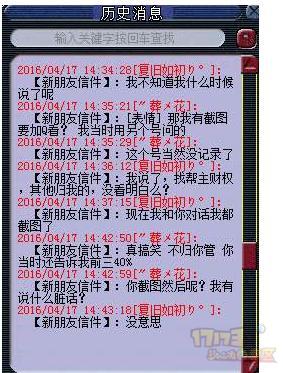 历史消息
输入关键字按回车查找
2016/04/17 14:34:28[夏旧如初り°]:
【新朋友信件】: 我不知道我什么时候
说了呢
2016/04/17 14:35:21[〞葬メ花]:
【新朋友信件】: [表情] 那我有截图
要加Q看？ 我当时用另个号问的
2016/04/17 14:35:29[〞葬メ花]:
【新朋友信件】: 这个号当然没记录了
2016/04/17 14:36:12[夏旧如初り°]:
【新朋友信件】: 我说了，我帮主财权
，其他归我的，没看明白么？
2016/04/17 14:37:15[夏旧如初り°]:
【新朋友信件】: 现在我和你对话我都
截图了
2016/04/17 14:42:50[〞葬メ花]:
【新朋友信件】: 真搞笑 不归你管 你
当时还告诉我前三40%
2016/04/17 14:42:59[〞葬メ花]:
【新朋友信件】: 你截图然后呢？我有
说什么脏话？
2016/04/17 14:43:18[夏旧如初り°]:
【新朋友信件】: 没意思
17173